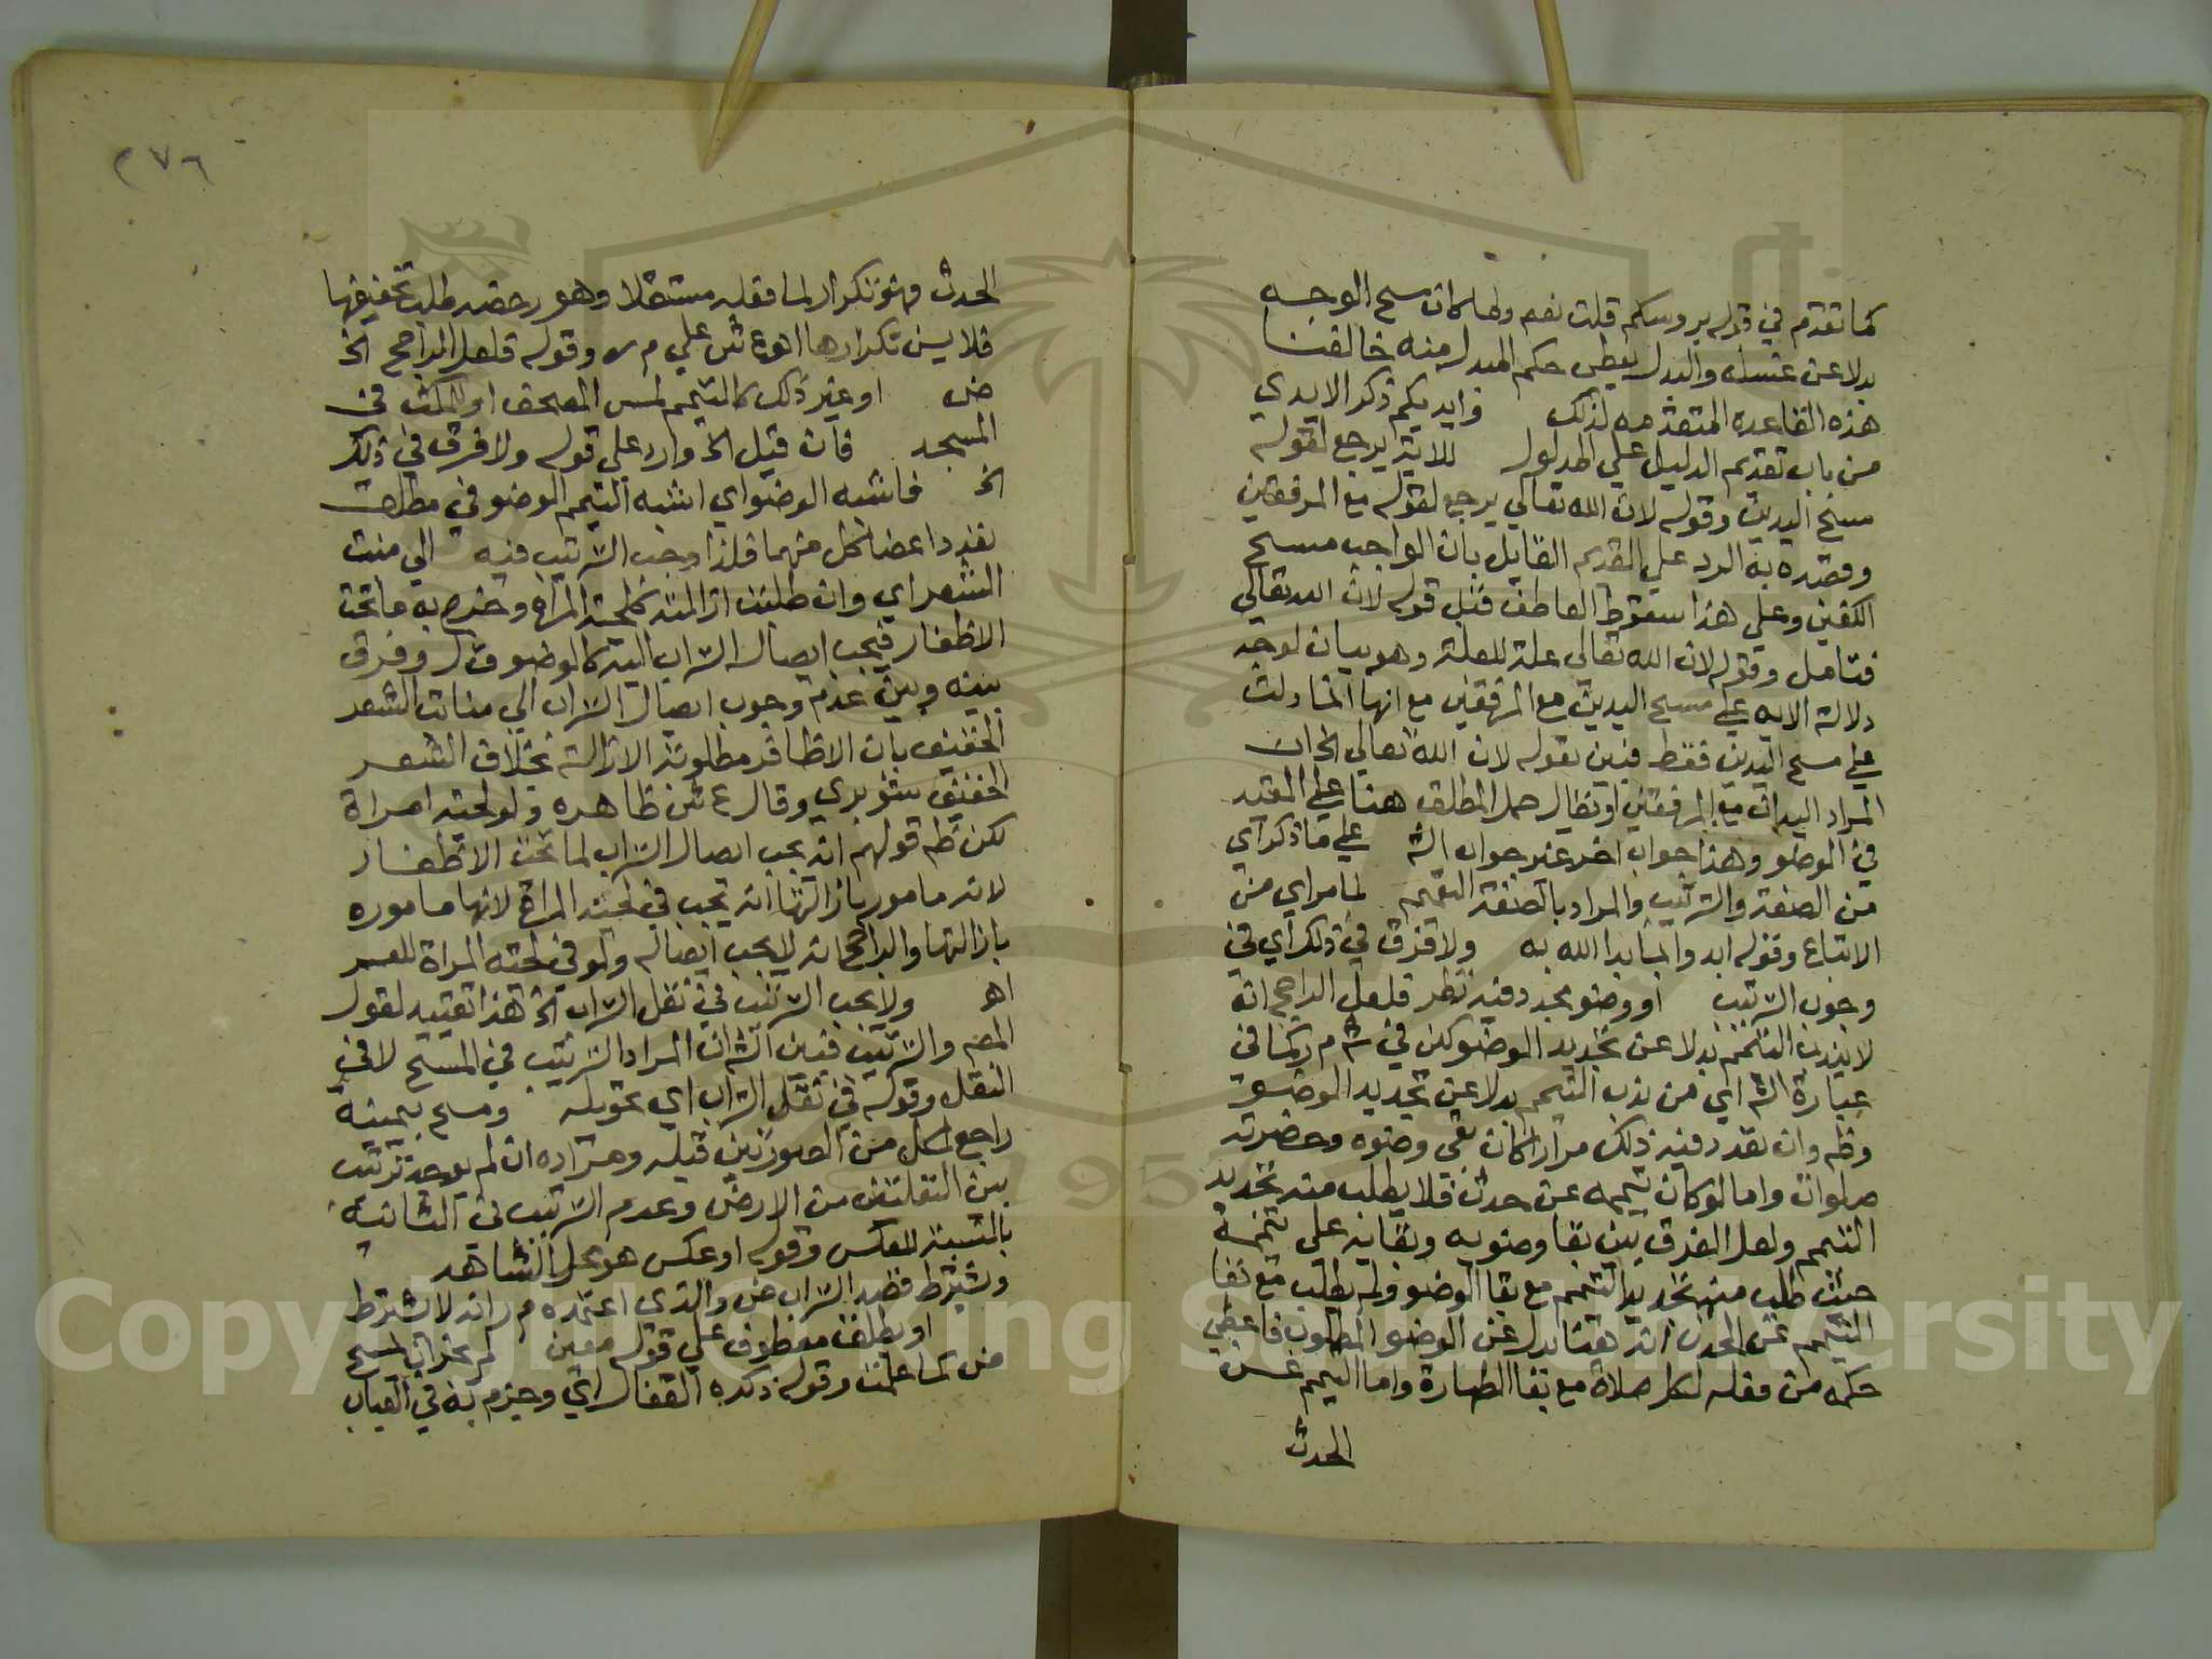 كما تقدم في قوله بروسكم قلت نعم ولما كان مسح الوجه
بدلا عن غسله والبدل يعطى حكم المبدل منه خالفنا
هذه القاعدة المتقدمه لذلك وايديكم ذكر الايدي
من باب تقديم الدليل علي المدلول للاية يرجع لقوله
مسح اليدين وقوله لان الله تعالي يرجع لقوله مع المرفقين
وقصده به الرد علي القديم القايل بان الواجب مسح
الكفين وعلي هذا سقوط العاطف قبل قوله لان الله تعالي
فتامل وقوله لان الله تعالي علة للعلة وهو بيان لوجه
دلالة الايه علي مسح اليدين مع المرفقين مع انها انما دلت
علي مسح اليدين فقط فبين بقوله لان الله تعالي الخ ان
المراد اليدان مع المرفقين او يقال حمل المطلق هنا علي المقيد
في الوضو وهذا جواب اخر غير جواب الش علي ما ذكر اي
من الصفة والترتيب والمراد بالصفة التعميم لما مر اي من
الاتباع وقوله ابدوا بما بدا الله به ولا فرق في ذلك اي في
وجوب الترتيب او وضو مجدد فيه نظر فلعل الراجح انه
لا يندب التيمم بدلا عن تجديد الوضو لكن في ش م ر كما في
عبارة الش اي من ندب التيمم بدلا عن تجديد الوضو
وظم وان تعدد فيه ذلك مرارا كان بقي وضوه وحضرته
صلوات واما لو كان تيممه عن حدث فلا يطلب منه تجديد
التيمم ولعل الفرق بين بقا وضويه وبقايه على تيممه
حيث طلب منه تجديد التيمم مع بقا الوضو ولم يطلب مع بقا
التيمم عن الحدث انه هنا بدل عن الوضو المطلوب فاعطي
حكمه من فعله لكل صلاة مع بقا الطهارة واما التيمم عن
الحدث
٢٧٦
الحدث فهو تكرار لما فعله مستقلا وهو رخصه طلب تخفيفها
فلا يسن تكرارها اه ع ش علي م ر وقوله فلعل الراجح الخ
ض او غير ذلك كالتيمم لمس المصحف او للمكث في
المسجد فان قيل الخ وارد علي قوله ولا فرق في ذلك
الخ فاشبه الوضو اي اشبه التيمم الوضو في مطلق
تعدد اعضا كل منهما فلذا وجب الترتيب فيه الي منبت
الشعر اي وان طلبت ازالته كلحية المراة وخرج به ما تحت
الاظفار فيجب ايصال التراب اليه كالوضو ق ل وفرق
بينه وبين عدم وجوب ايصال التراب الي منابت الشعر
الخفيف بان الاظافر مطلوبة الازالة بخلاف الشعر
الخفيف شوبري وقال ع ش ظاهره ولو لحية امراة
لكن ظم قولهم انه يجب ايصال التراب لما تحت الاظفار
لانه مامور بازالتها انه يجب في لحية المراة لانها ماموره
بازالتها والراجح انه لا يجب ايصاله ولو في لحية المراة للعسر
اه ولا يجب الترتيب في نقل التراب الخ هذا تقييد لقول
المص والترتيب فبين الش ان المراد الترتيب في المسح لا في
النقل وقوله في نقل التراب اي تحويله ومسح بيمينه
راجع لكل من الصورتين قبله ومراده ان لم يوجد ترتيب
بين النقلتين من الارض وعدم الترتيب في الثانية
بالنسبة للعكس وقوله او عكس هو محل الشاهد
ويشترط قصد التراب ض والذي اعتمده م ر انه لا يشترط
او يطلق معطوف علي قوله معين لم يجز اي المسح
ض كما علمت وقوله ذكره القفال اي وجزم به في العباب